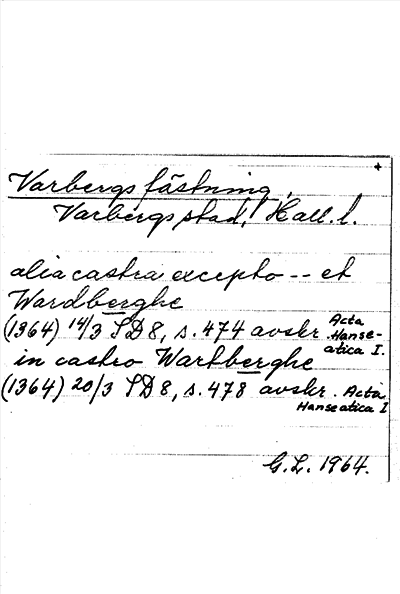 +
Varbergs fästning,
Varbergs stad, Hall. l.
alia castra excepto -- et
Wardberghe
(1964) 14/3 SD 8, s. 474 avskr. Acta Hanse-
atica I.
in castro Wartberghe
(1364) 20/3 SD 8, s. 478 avskr. Acta
Hanseatica I
G.L. 1964.